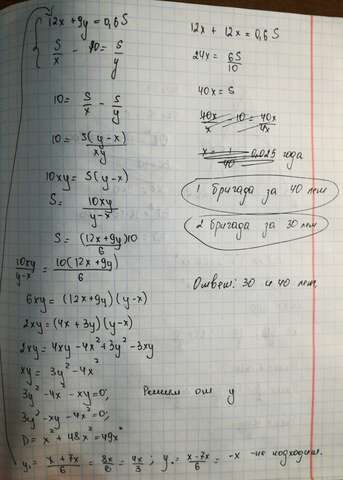 12x + 9y = 0,6 S
S/x - 10 = S/y
10 = S/x - S/y
10 = S(y-x)/xy
10xy = S(y-x)
S = 10xy/y-x
S = (12x+9y)10/6
10xy/y-x = 10(12x+9y)/6
6xy = (12x+9y)(y-x)
2xy = (4x+3y)(y-x)
2xy = 4xy - 4x² + 3y² - 3xy
xy = 3y² - 4x²
3y² - 4x² - xy = 0;
3y² - xy - 4x² = 0;
D = x² + 48x² = 49x²
y₁ = x+7x/6 = 8x/6 = 4x/3 ; y₂ = x-7x/6 = -x - не подходит.
12x + 12x = 0,6 S
24x = 6S/10
40x = S
40x/x - 10 = 40x/4x
x = 1/40 = 0,025 года
1 бригада за 40 лет
2 бригада за 30 лет
Ответ: 30 и 40 лет.
Решаем от y